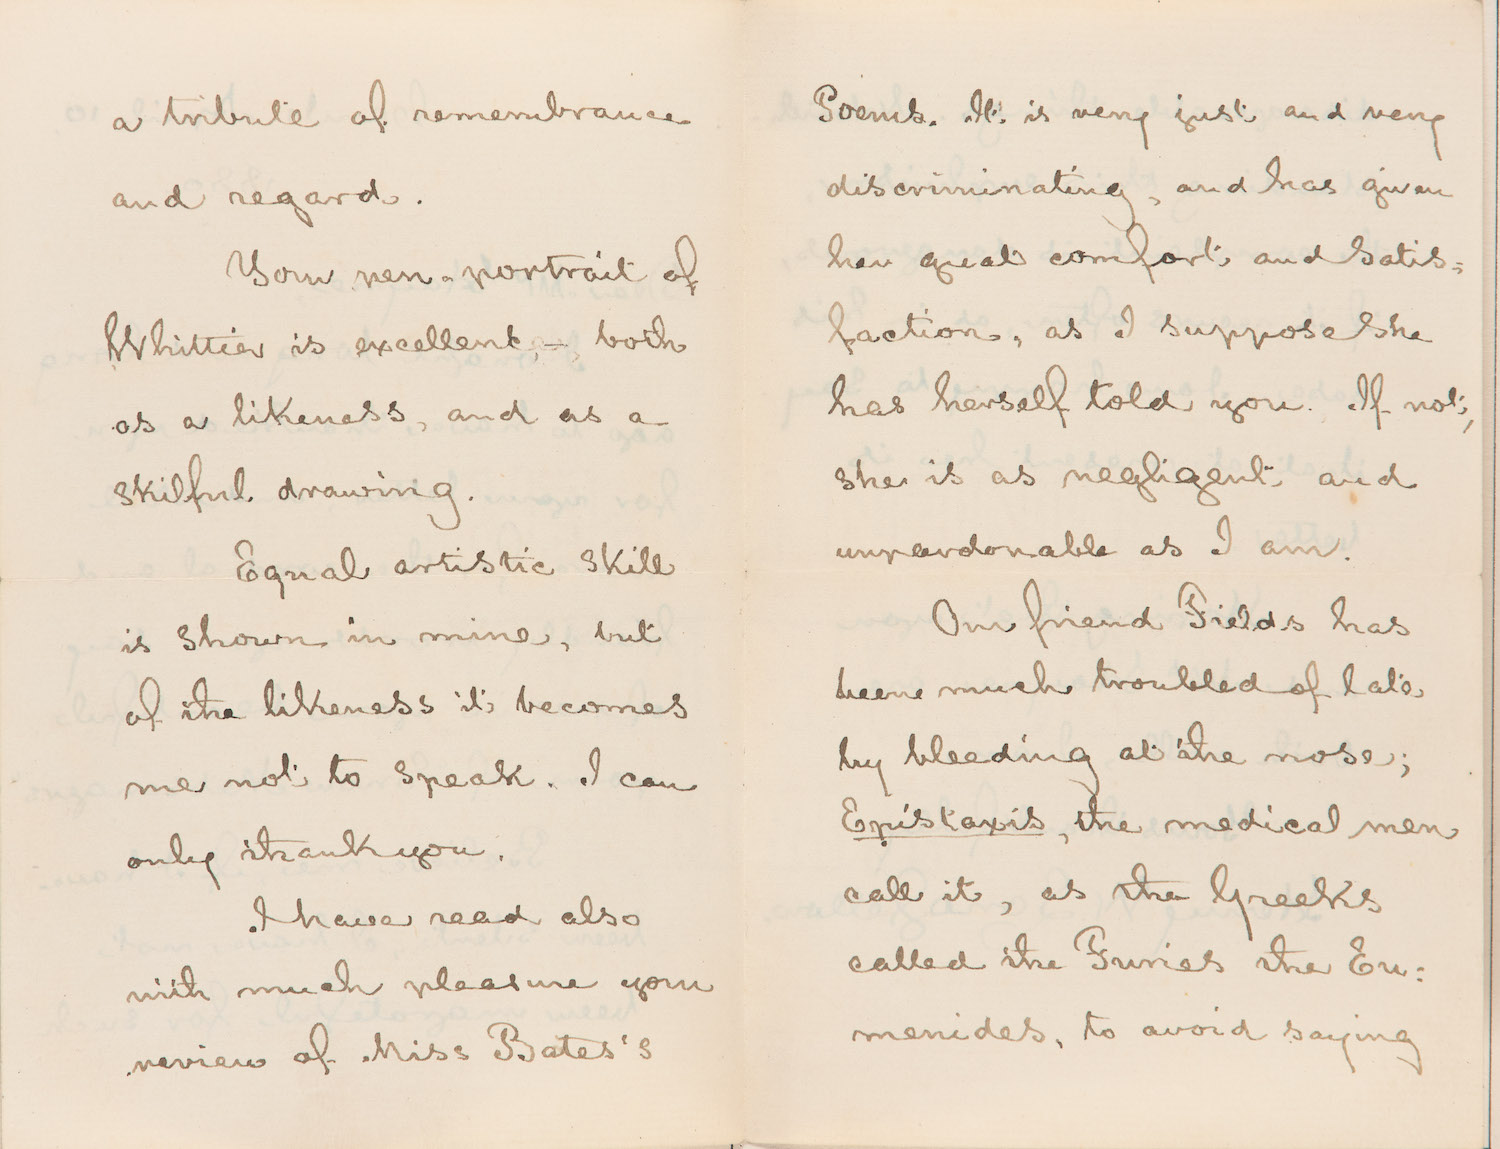 a tribute of remembrance
and regard.
Your pen-portrait of
Whittier is excellent, — both
as a likeness, and as a
skilful drawing.
Equal artistic skill
is shown in mine, but
of the likeness it becomes
me not to speak. I can
only thank you.
I have read also
with much pleasure your
review of Miss Bates's
Poems. It is very just and very
discriminating, and has given
her great comfort and satis=
faction, as I suppose she
has herself told you. If not,
she is as negligent and
unpardonable as I am.
Our friend Fields has
been much troubled of late
by bleeding at the nose;
Epistaxis, the medical men
call it, as the Greeks
called the Furies the Eu=
menides, to avoid saying